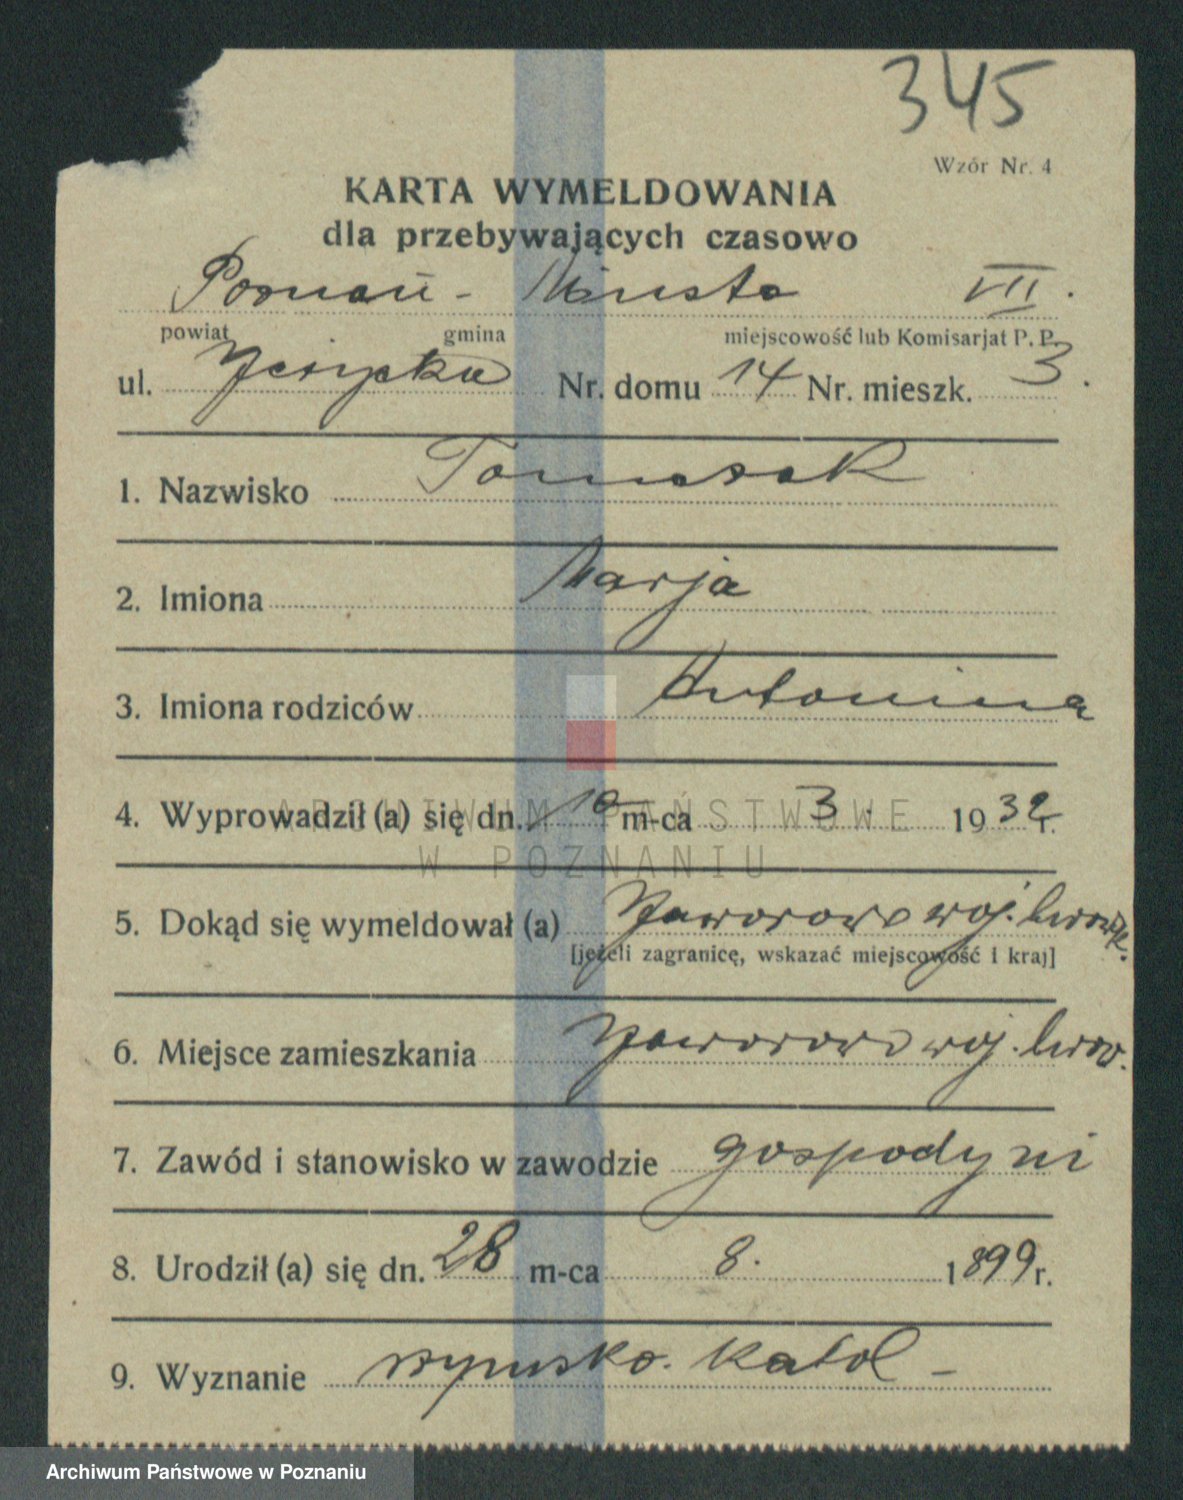 345
Wzór Nr. 4
KARTA WYMELDOWANIA
dla przebywających czasowo
Poznań - Miasto VII.
powiat gmina miejscowość lub Komisarjat P. P.
ul. Jeżycka Nr. domu 14 Nr. mieszk. 3.
1. Nazwisko Tomasak
2. Imiona Marja
3. Imiona rodziców Antonina
4. Wyprowadził (a) się dn. 10 m-ca 3 1932 r.
ARCHIWUM PAŃSTWOWE
W POZNANIU
5. Dokąd się wymeldował (a) Jaworowo woj. lwowsk.
[jeżeli zagranicę, wskazać miejscowość i kraj]
6. Miejsce zamieszkania Jaworowo woj. lwow.
7. Zawód i stanowisko w zawodzie gospodyni
8. Urodził (a) się dn. 28 m-ca 8. 1899 r.
9. Wyznanie rzymsko. katol -
Archiwum Państwowe w Poznaniu